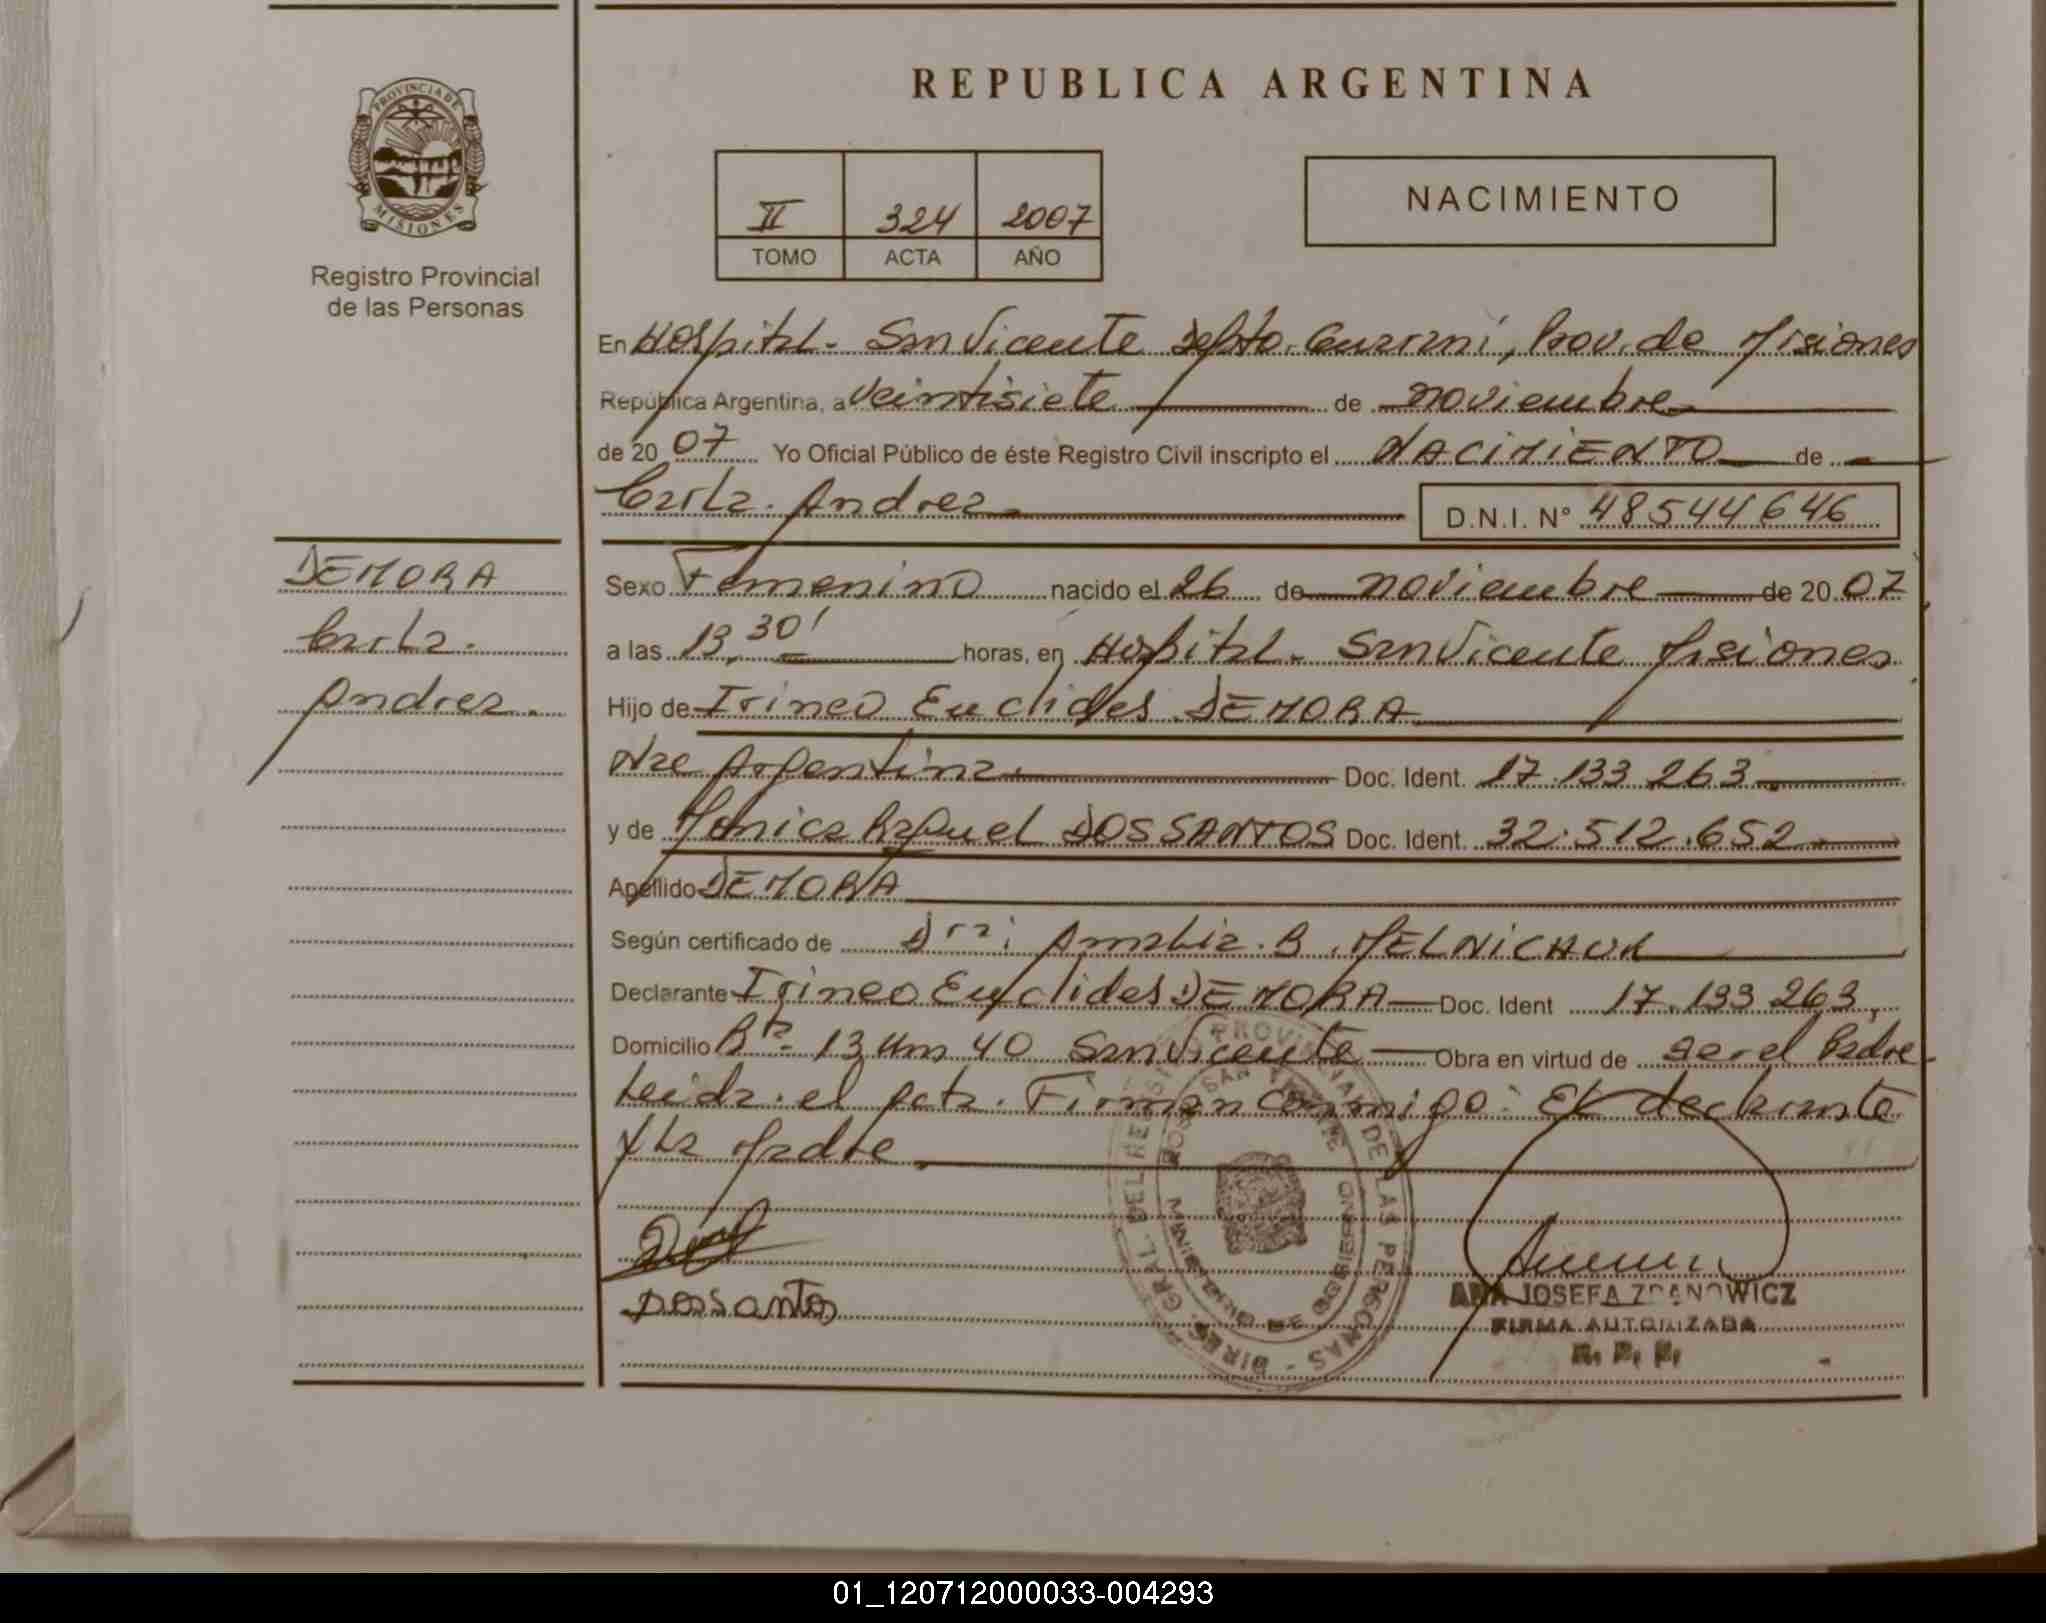 REPUBLICA ARGENTINA
PROVINCIA DE MISIONES
Registro Provincial
de las Personas
II 324 2007
TOMO ACTA AÑO
NACIMIENTO
En Hospital - San Vicente Depto. Guaraní, Prov. de Misiones
República Argentina, a veintisiete de noviembre
de 20 07 Yo Oficial Público de éste Registro Civil inscripto el NACIMIENTO de
Carla Andrea
D.N.I. N° 48544646
DEMORA
Carla
Andrea
Sexo Femenino nacido el 26 de noviembre de 20 07
a las 13,30' horas, en Hospital - San Vicente Misiones
Hijo de Irineo Euclides DEMORA
Nac Argentina Doc. Ident. 17.133.263
y de Monica Raquel DOS SANTOS Doc. Ident. 32.512.652
Apellido DEMORA
Según certificado de Dra: Amalia B. MELNICHUK
Declarante Irineo Euclides DEMORA Doc. Ident 17.133.263
Domicilio Bº 13 Km 40 San Vicente Obra en virtud de ser el Padre
Leida el acta. Firman conmigo: El declarante
y La Madre
Dossantos
ANA JOSEFA ZDANOWICZ
FIRMA AUTORIZADA
R. P. P.
01_120712000033-004293